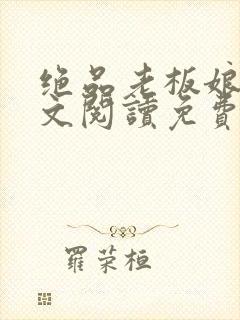 绝品老板娘
文阅讀免費
羅荣桓